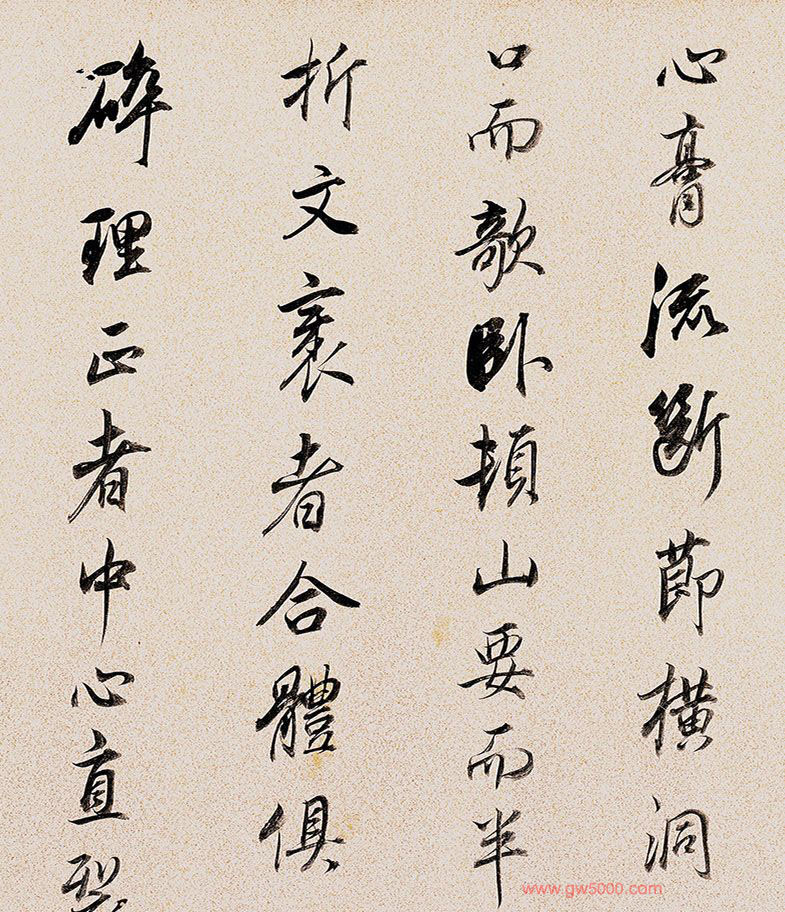 心膏流斷節橫洞
口而欹卧頓山要而半
折文裹者合體俱
碎理正者中心直裂
www.gw5000.com